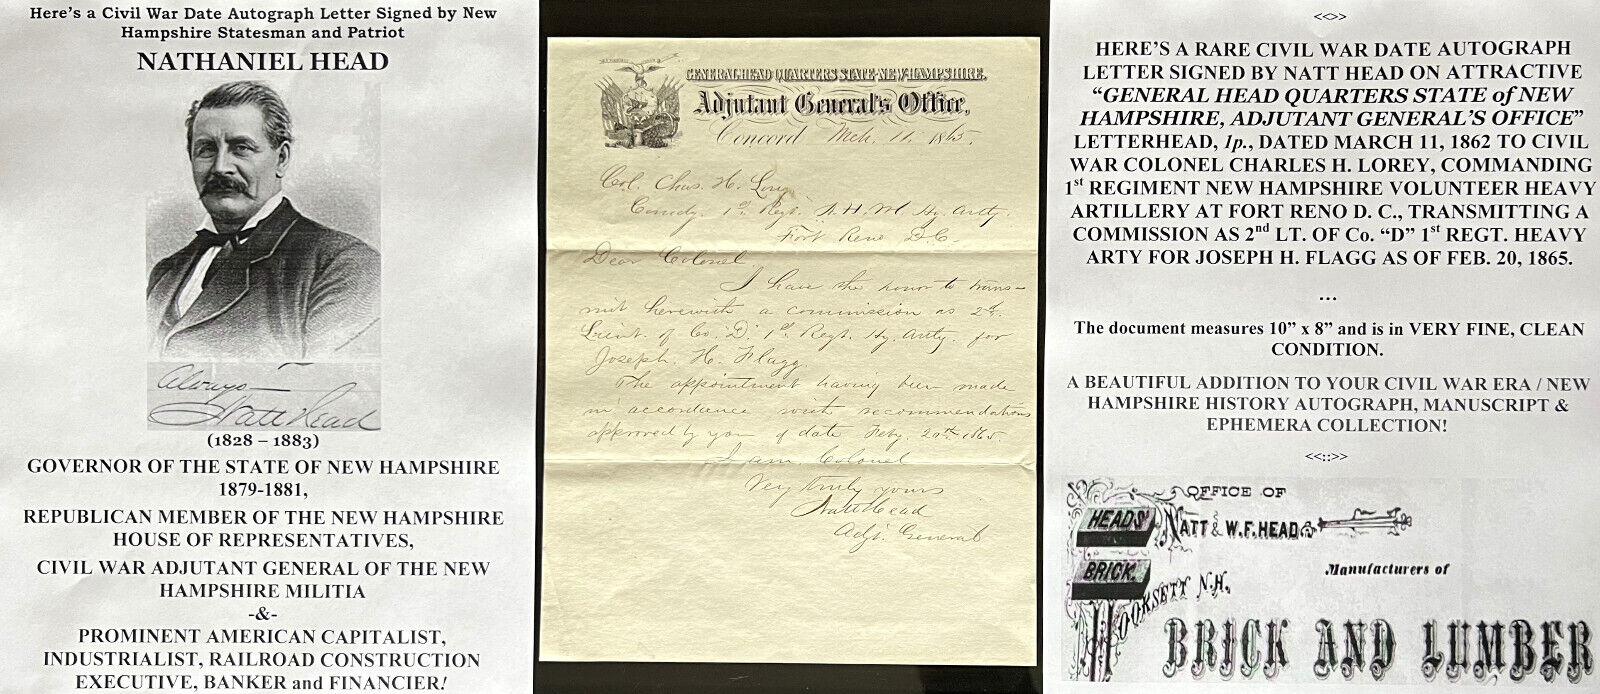 Here's a Civil War Date Autograph Letter Signed by New
Hampshire Statesman and Patriot
NATHANIEL HEAD
Always
Natt Head
(1828 – 1883)
GOVERNOR OF THE STATE OF NEW HAMPSHIRE
1879-1881,
REPUBLICAN MEMBER OF THE NEW HAMPSHIRE
HOUSE OF REPRESENTATIVES,
CIVIL WAR ADJUTANT GENERAL OF THE NEW
HAMPSHIRE MILITIA
-&-
PROMINENT AMERICAN CAPITALIST,
INDUSTRIALIST, RAILROAD CONSTRUCTION
EXECUTIVE, BANKER and FINANCIER!
GENERAL HEAD QUARTERS STATE of NEW-HAMPSHIRE.
Adjutant General's Office,
Concord Mch. 11. 1865.
Col. Chas. H. Long
Comdg. 1st Regt. N. H. Hy. Arty.
Fort Reno D.C.
Dear Colonel
I have the honor to trans-
mit herewith a commission as 2nd.
Lieut. of Co. "D" 1st Regt. Hy. Arty. for
Joseph H. Flagg.
The appointment having been made
in accordance with recommendations
approved by you of date Feby. 20th 1865.
I am, Colonel
Very truly yours
Natt Head
Adjt. General
<<>>
HERE'S A RARE CIVIL WAR DATE AUTOGRAPH
LETTER SIGNED BY NATT HEAD ON ATTRACTIVE
"GENERAL HEAD QUARTERS STATE of NEW
HAMPSHIRE, ADJUTANT GENERAL'S OFFICE"
LETTERHEAD, 1p., DATED MARCH 11, 1862 TO CIVIL
WAR COLONEL CHARLES H. LOREY, COMMANDING
1st REGIMENT NEW HAMPSHIRE VOLUNTEER HEAVY
ARTILLERY AT FORT RENO D. C., TRANSMITTING A
COMMISSION AS 2nd LT. OF Co. "D" 1st REGT. HEAVY
ARTY FOR JOSEPH H. FLAGG AS OF FEB. 20, 1865.
…
The document measures 10" x 8" and is in VERY FINE, CLEAN
CONDITION.
A BEAUTIFUL ADDITION TO YOUR CIVIL WAR ERA / NEW
HAMPSHIRE HISTORY AUTOGRAPH, MANUSCRIPT &
EPHEMERA COLLECTION!
<<::>>
OFFICE OF
HEADS'
NATT & W.F. HEAD,
BRICK.
Manufacturers of
HOOKSETT N.H.
BRICK AND LUMBER